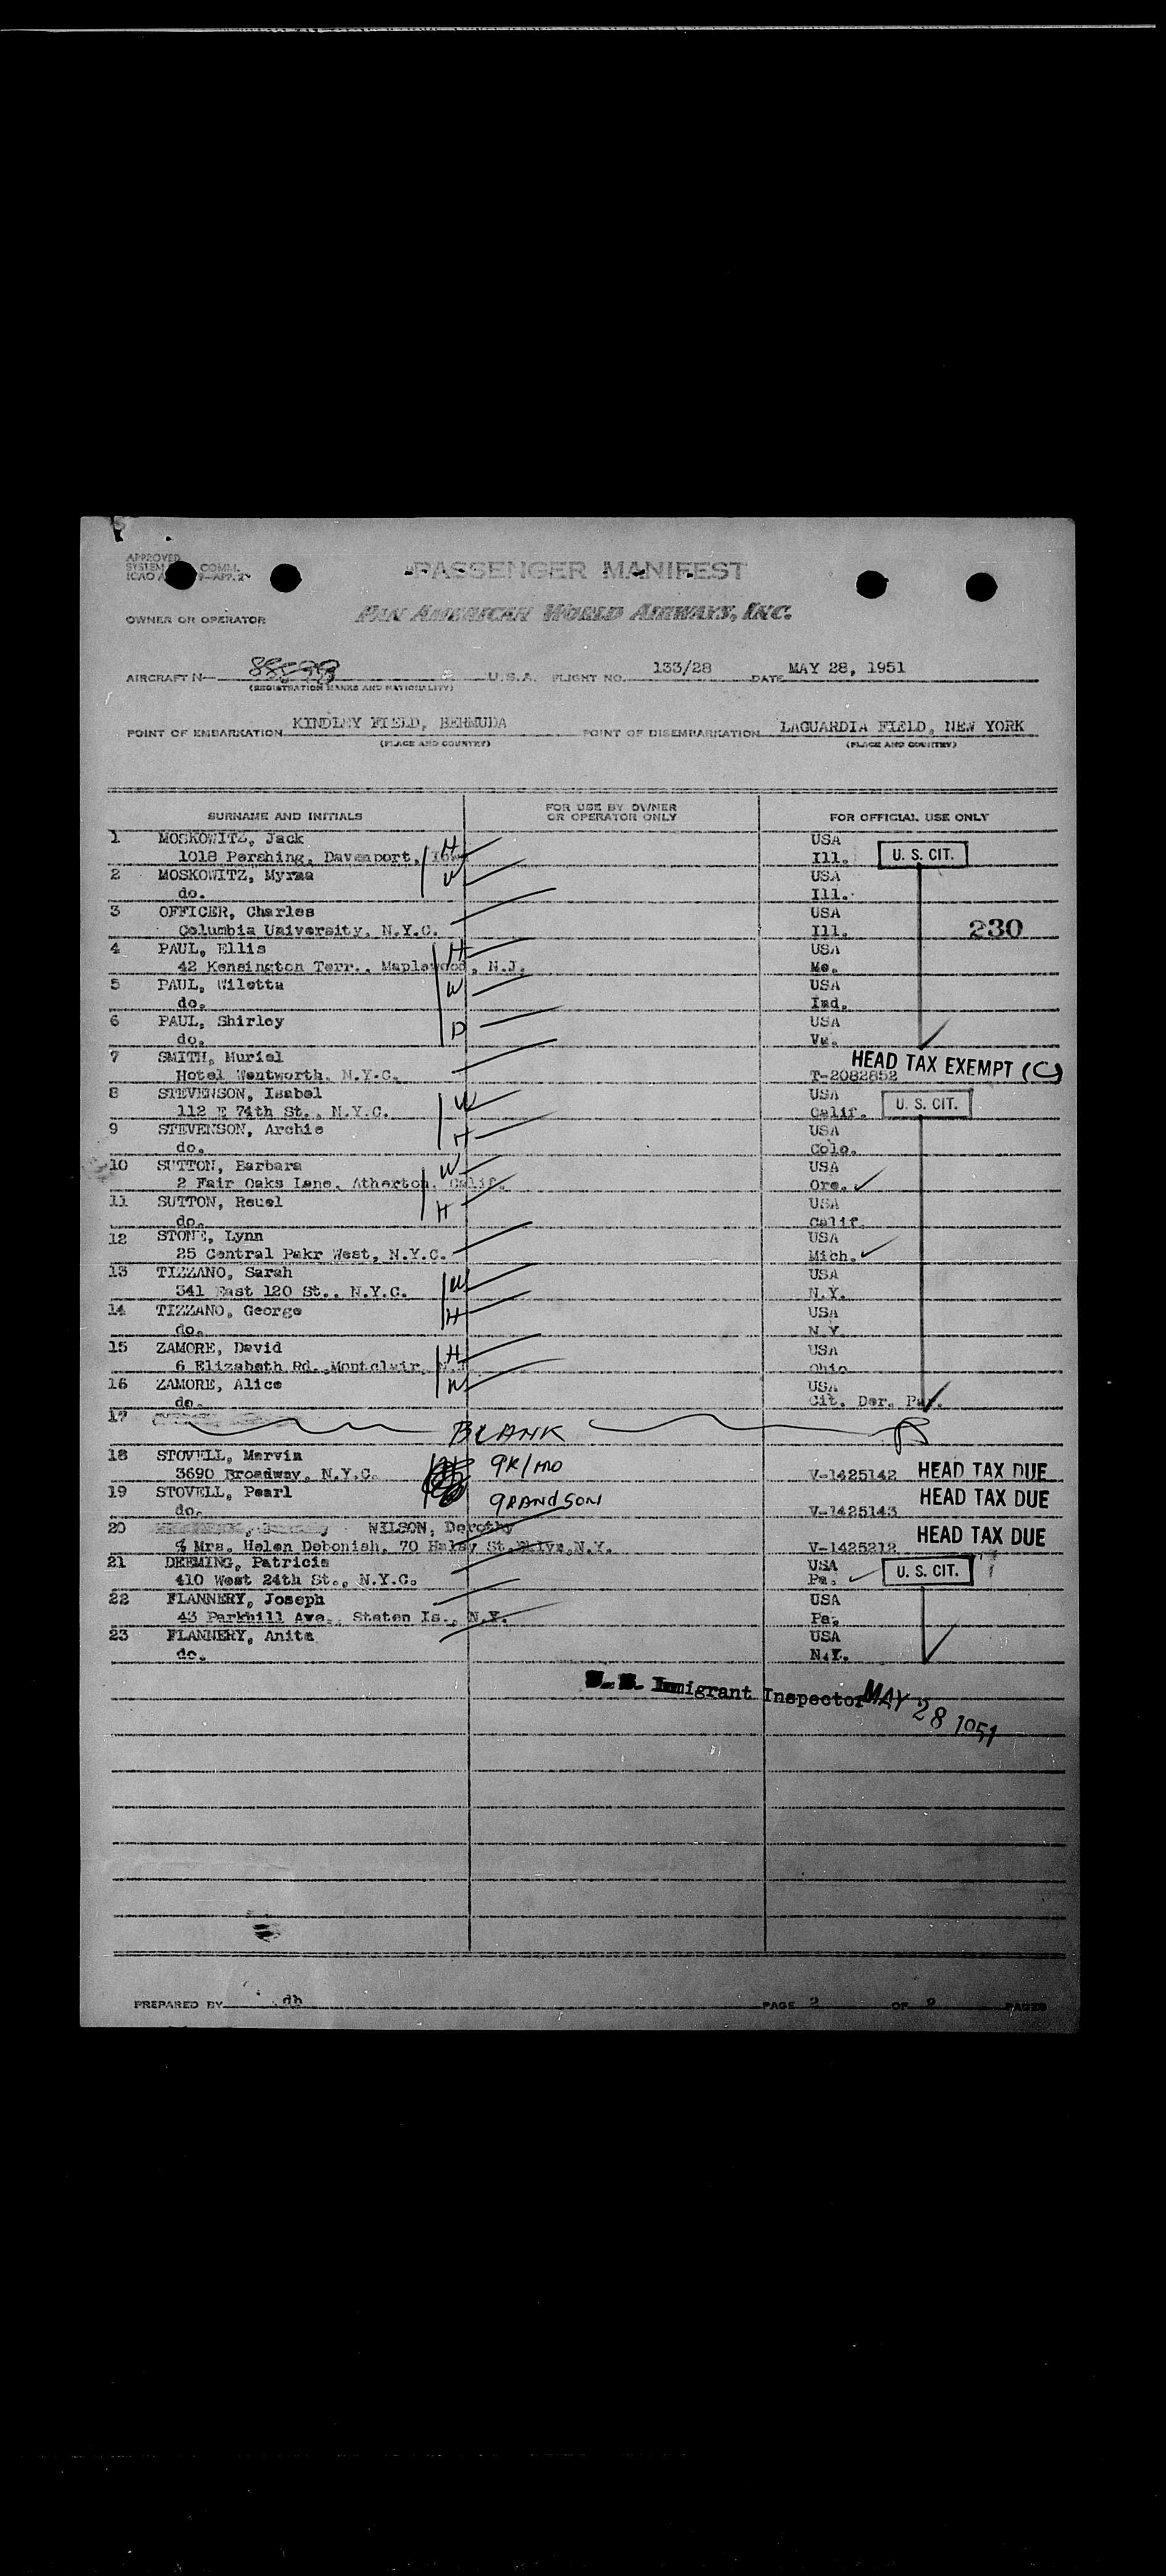 APPROVED
SYSTEM COMM.
ICAO
PASSENGER MANIFEST
OWNER OR OPERATOR PAN AMERICAN WORLD AIRWAYS, INC.
AIRCRAFT N— U.S.A. FLIGHT NO. 133/28 DATE MAY 28, 1951
(REGISTRATION MARKS AND NATIONALITY)
POINT OF EMBARKATION KINDLEY FIELD, BERMUDA POINT OF DISEMBARKATION LAGUARDIA FIELD, NEW YORK
(PLACE AND COUNTRY) (PLACE AND COUNTRY)
SURNAME AND INITIALS FOR USE BY OWNER OR OPERATOR ONLY FOR OFFICIAL USE ONLY
1 MOSKOWITZ, Jack H USA
1018 Pershing, Davenport, Iowa Ill. U. S. CIT.
2 MOSKOWITZ, Myrna W USA
do. Ill.
3 OFFICER, Charles USA
Columbia University, N.Y.C. Ill. 230
4 PAUL, Ellis H USA
42 Kensington Terr., Maplewood, N.J. Mo.
5 PAUL, Wiletta W USA
do. Ind.
6 PAUL, Shirley D USA
do.
7 SMITH, Muriel HEAD TAX EXEMPT (C)
Hotel Wentworth, N.Y.C. T-2082852
8 STEVENSON, Isabel W USA
112 E 74th St., N.Y.C. Calif. U. S. CIT.
9 STEVENSON, Archie H USA
do. Colo.
10 SUTTON, Barbara W USA
2 Fair Oaks Lane, Atherton, Calif. Ore.
11 SUTTON, Reuel H USA
do. Calif.
12 STONE, Lynn USA
25 Central Pakr West, N.Y.C. Mich.
13 TIZZANO, Sarah W USA
341 East 120 St., N.Y.C. N.Y.
14 TIZZANO, George H USA
do. N.Y.
15 ZAMORE, David H USA
6 Elizabeth Rd. Montclair, N.J. Ohio
16 ZAMORE, Alice W USA
do. Cit. Der. Par.
17 BLANK
18 STOVELL, Marvin GR/MO
3690 Broadway, N.Y.C. V-1425142 HEAD TAX DUE
19 STOVELL, Pearl GRANDSON HEAD TAX DUE
do. V-1425143
20 WILSON, Dorothy HEAD TAX DUE
% Mrs. Helen Debonish, 70 Halsy St. Bklyn, N.Y. V-1425212
21 DEEMING, Patricia USA
410 West 24th St., N.Y.C. Pa. U. S. CIT.
22 FLANNERY, Joseph USA
43 Parkhill Ave., Staten Is., N.Y. Pa.
23 FLANNERY, Anita USA
do. N.Y.
U. S. Immigrant Inspector MAY 28 1951
PREPARED BY db PAGE 2 OF 2 PAGES